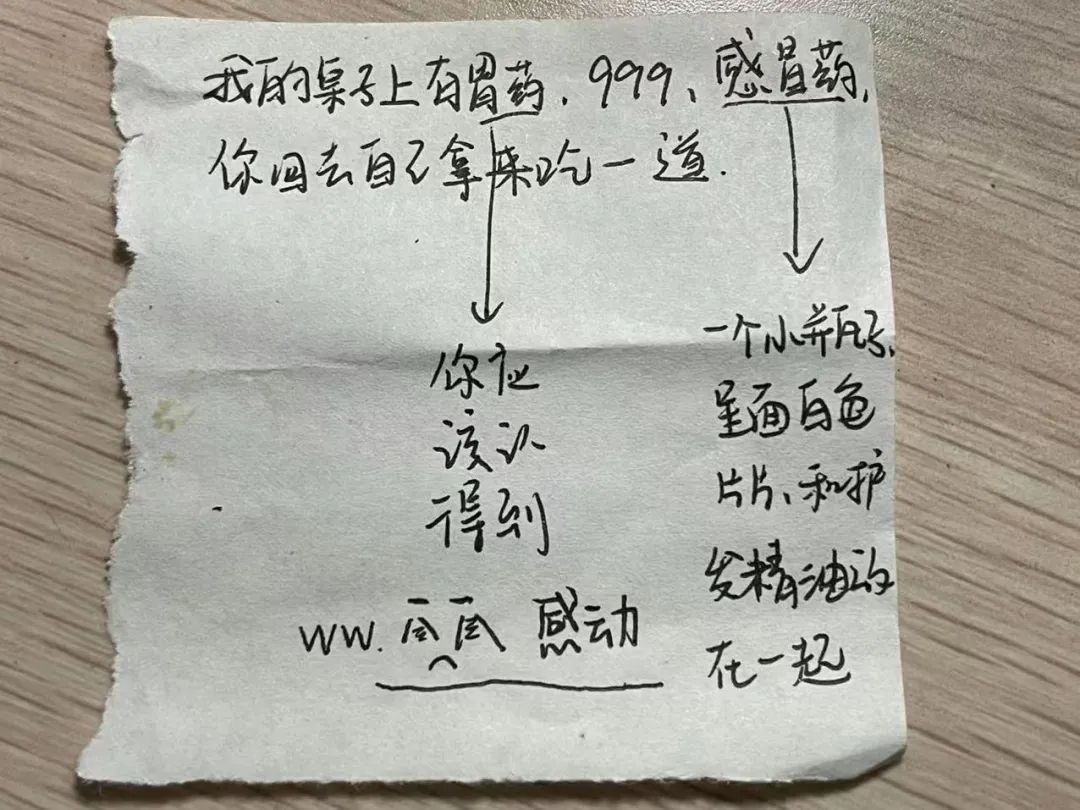 我的桌子上有胃药、999、感冒药,
你回去自己拿来吃一道.
你应
该认
得到
ww. 感动
一个小瓶子、
里面白色
片片、和护
发精油放
在一起